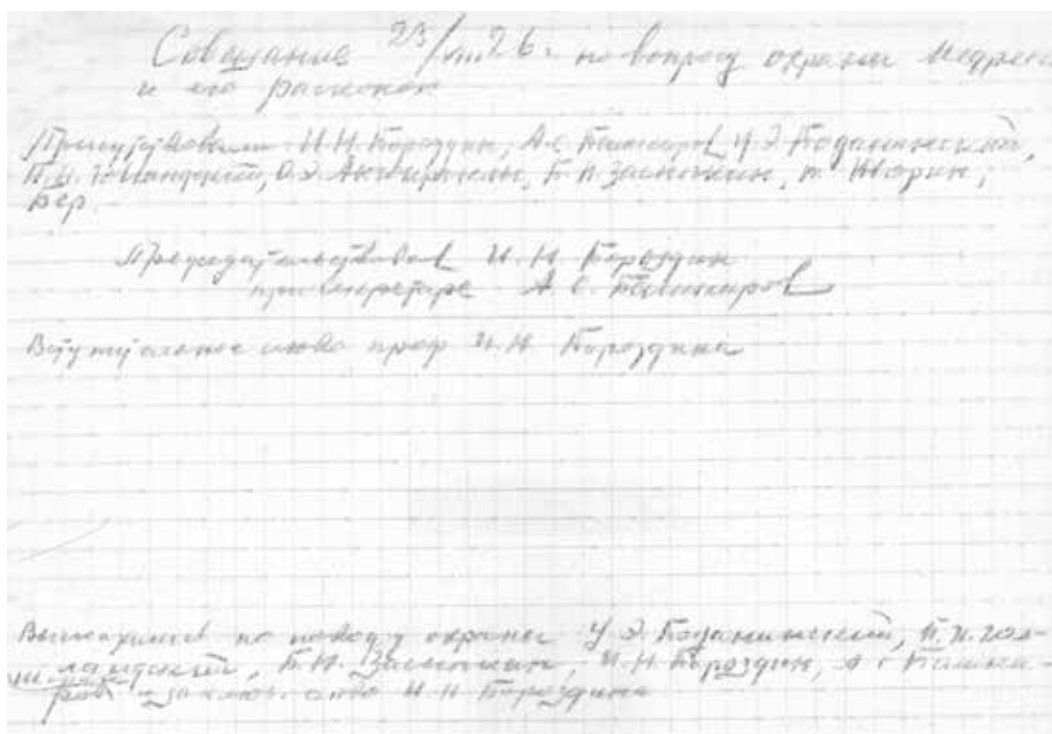 Совещание 23/VIII 26 г. по вопросу охраны Медресе
и его раскопок
Присутствовали И.Н. Бороздин, А.С. Башкиров, У.Э. Боданинский,
П.И. Голландский, О.Э. Акчокраклы, Б.Н. Засыпкин, т.
Председательствовал И.Н. Бороздин
при секретаре А.С. Башкиров
Вступительное слово проф И.Н. Бороздина
Высказались по поводу охраны У.Э. Боданинский, П.И. Гол-
ландский, Б.Н. Засыпкин, И.Н. Бороздин, А.С. Башки-
ров заключ. слово И.Н. Бороздина